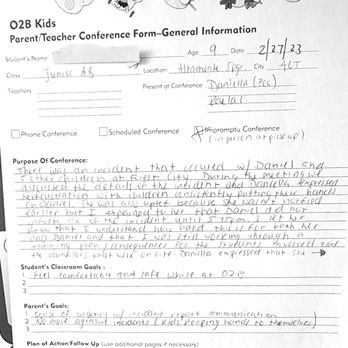 O2B Kids
Parent/Teacher Conference Form–General Information
Student's Name Age: 9 2/27/23
Class Junior AB Location: Altamonte Spgs. City ALT
Teachers Present at Conference: Daniella
Paula
Phone Conference Scheduled Conference Impromptu Conference
(in person at pick up)
Purpose Of Conference:
There was an incident that occured w/ Daniel and
other children at Forest City. During the meeting we
discussed the details of the incident and Daniella expressed
frustration with children consistently putting their hands
on Daniel. She was also upset because she wasn't notified
earlier but I explained to her that Daniel did not
inform me of the incident until 5:15pm. I let her
know that I understand how hard this is for both her
and Daniel and that I was still working through a
plan/consequences for the students involved and
the controls that will be on site. Daniella expressed that she →
Student's Classroom Goals:
1 Feel comfortable and safe while at O2B
2
3
Parent's Goals:
1 Sense of urgency w/ incident report communication
2 No more agressive incidents (kids keeping hands to themselves)
3
Plan of Action/Follow Up (use additional pages if necessary)